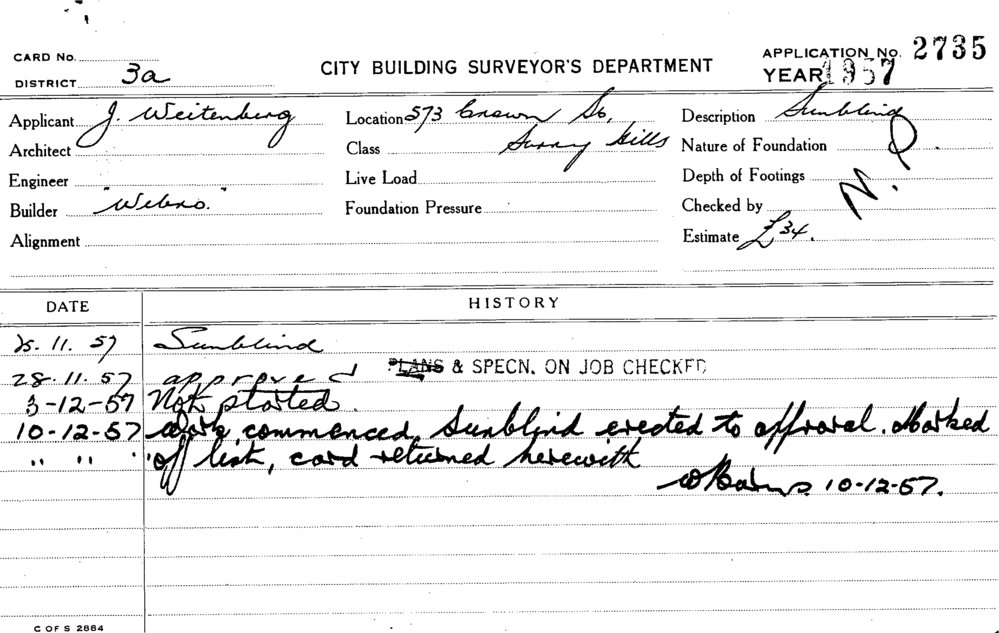 CARD No.
DISTRICT 3a
CITY BUILDING SURVEYOR'S DEPARTMENT
APPLICATION No. 2735
YEAR 1957
Applicant J. Weitenberg
Architect
Engineer
Builder "Webno."
Alignment
Location 573 Crown St,
Class Surry Hills
Live Load
Foundation Pressure
Description Sunblind
Nature of Foundation
Depth of Footings
Checked by
N.P.
Estimate £34.
DATE HISTORY
25.11.57 Sunblind
28.11.57 approved PLANS & SPECN. ON JOB CHECKED
3-12-57 Not started.
10-12-57 Work commenced, Sunblind erected to approval. Marked
" " " off list, card returned herewith
10-12-57.
C OF S 2884